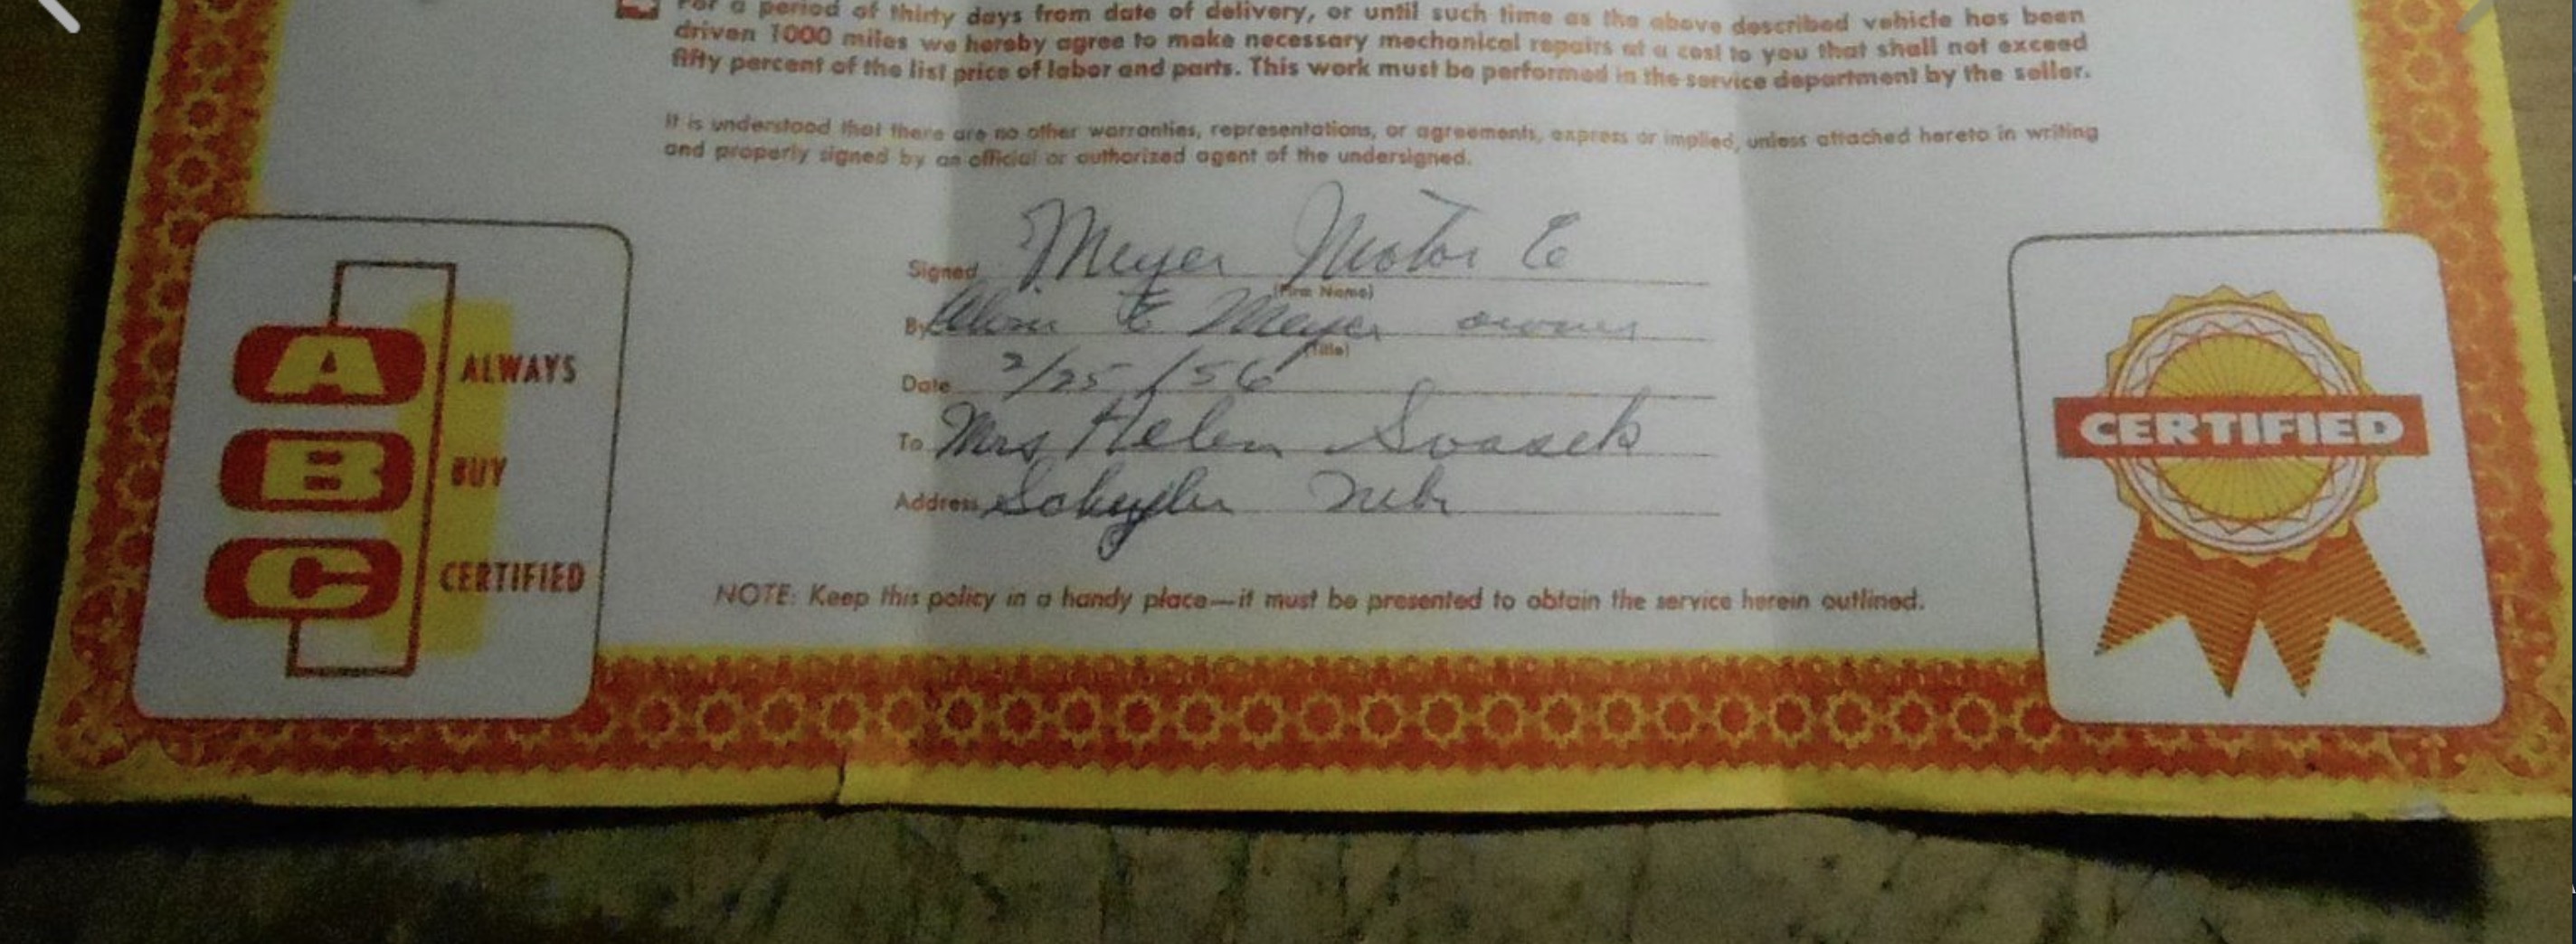 For a period of thirty days from date of delivery, or until such time as the above described vehicle has been
driven 1000 miles we hereby agree to make necessary mechanical repairs at a cost to you that shall not exceed
fifty percent of the list price of labor and parts. This work must be performed in the service department by the seller.
It is understood that there are no other warranties, representations, or agreements, express or implied, unless attached hereto in writing
and properly signed by an official or authorized agent of the undersigned.
Signed Meyer Motor Co
(Firm Name)
By E Meyer owner
(Title)
Date 2/25/56
To Mrs Helen Svasek
Address Schuyler Nebr
A ALWAYS
B BUY
C CERTIFIED
CERTIFIED
NOTE: Keep this policy in a handy place—it must be presented to obtain the service herein outlined.